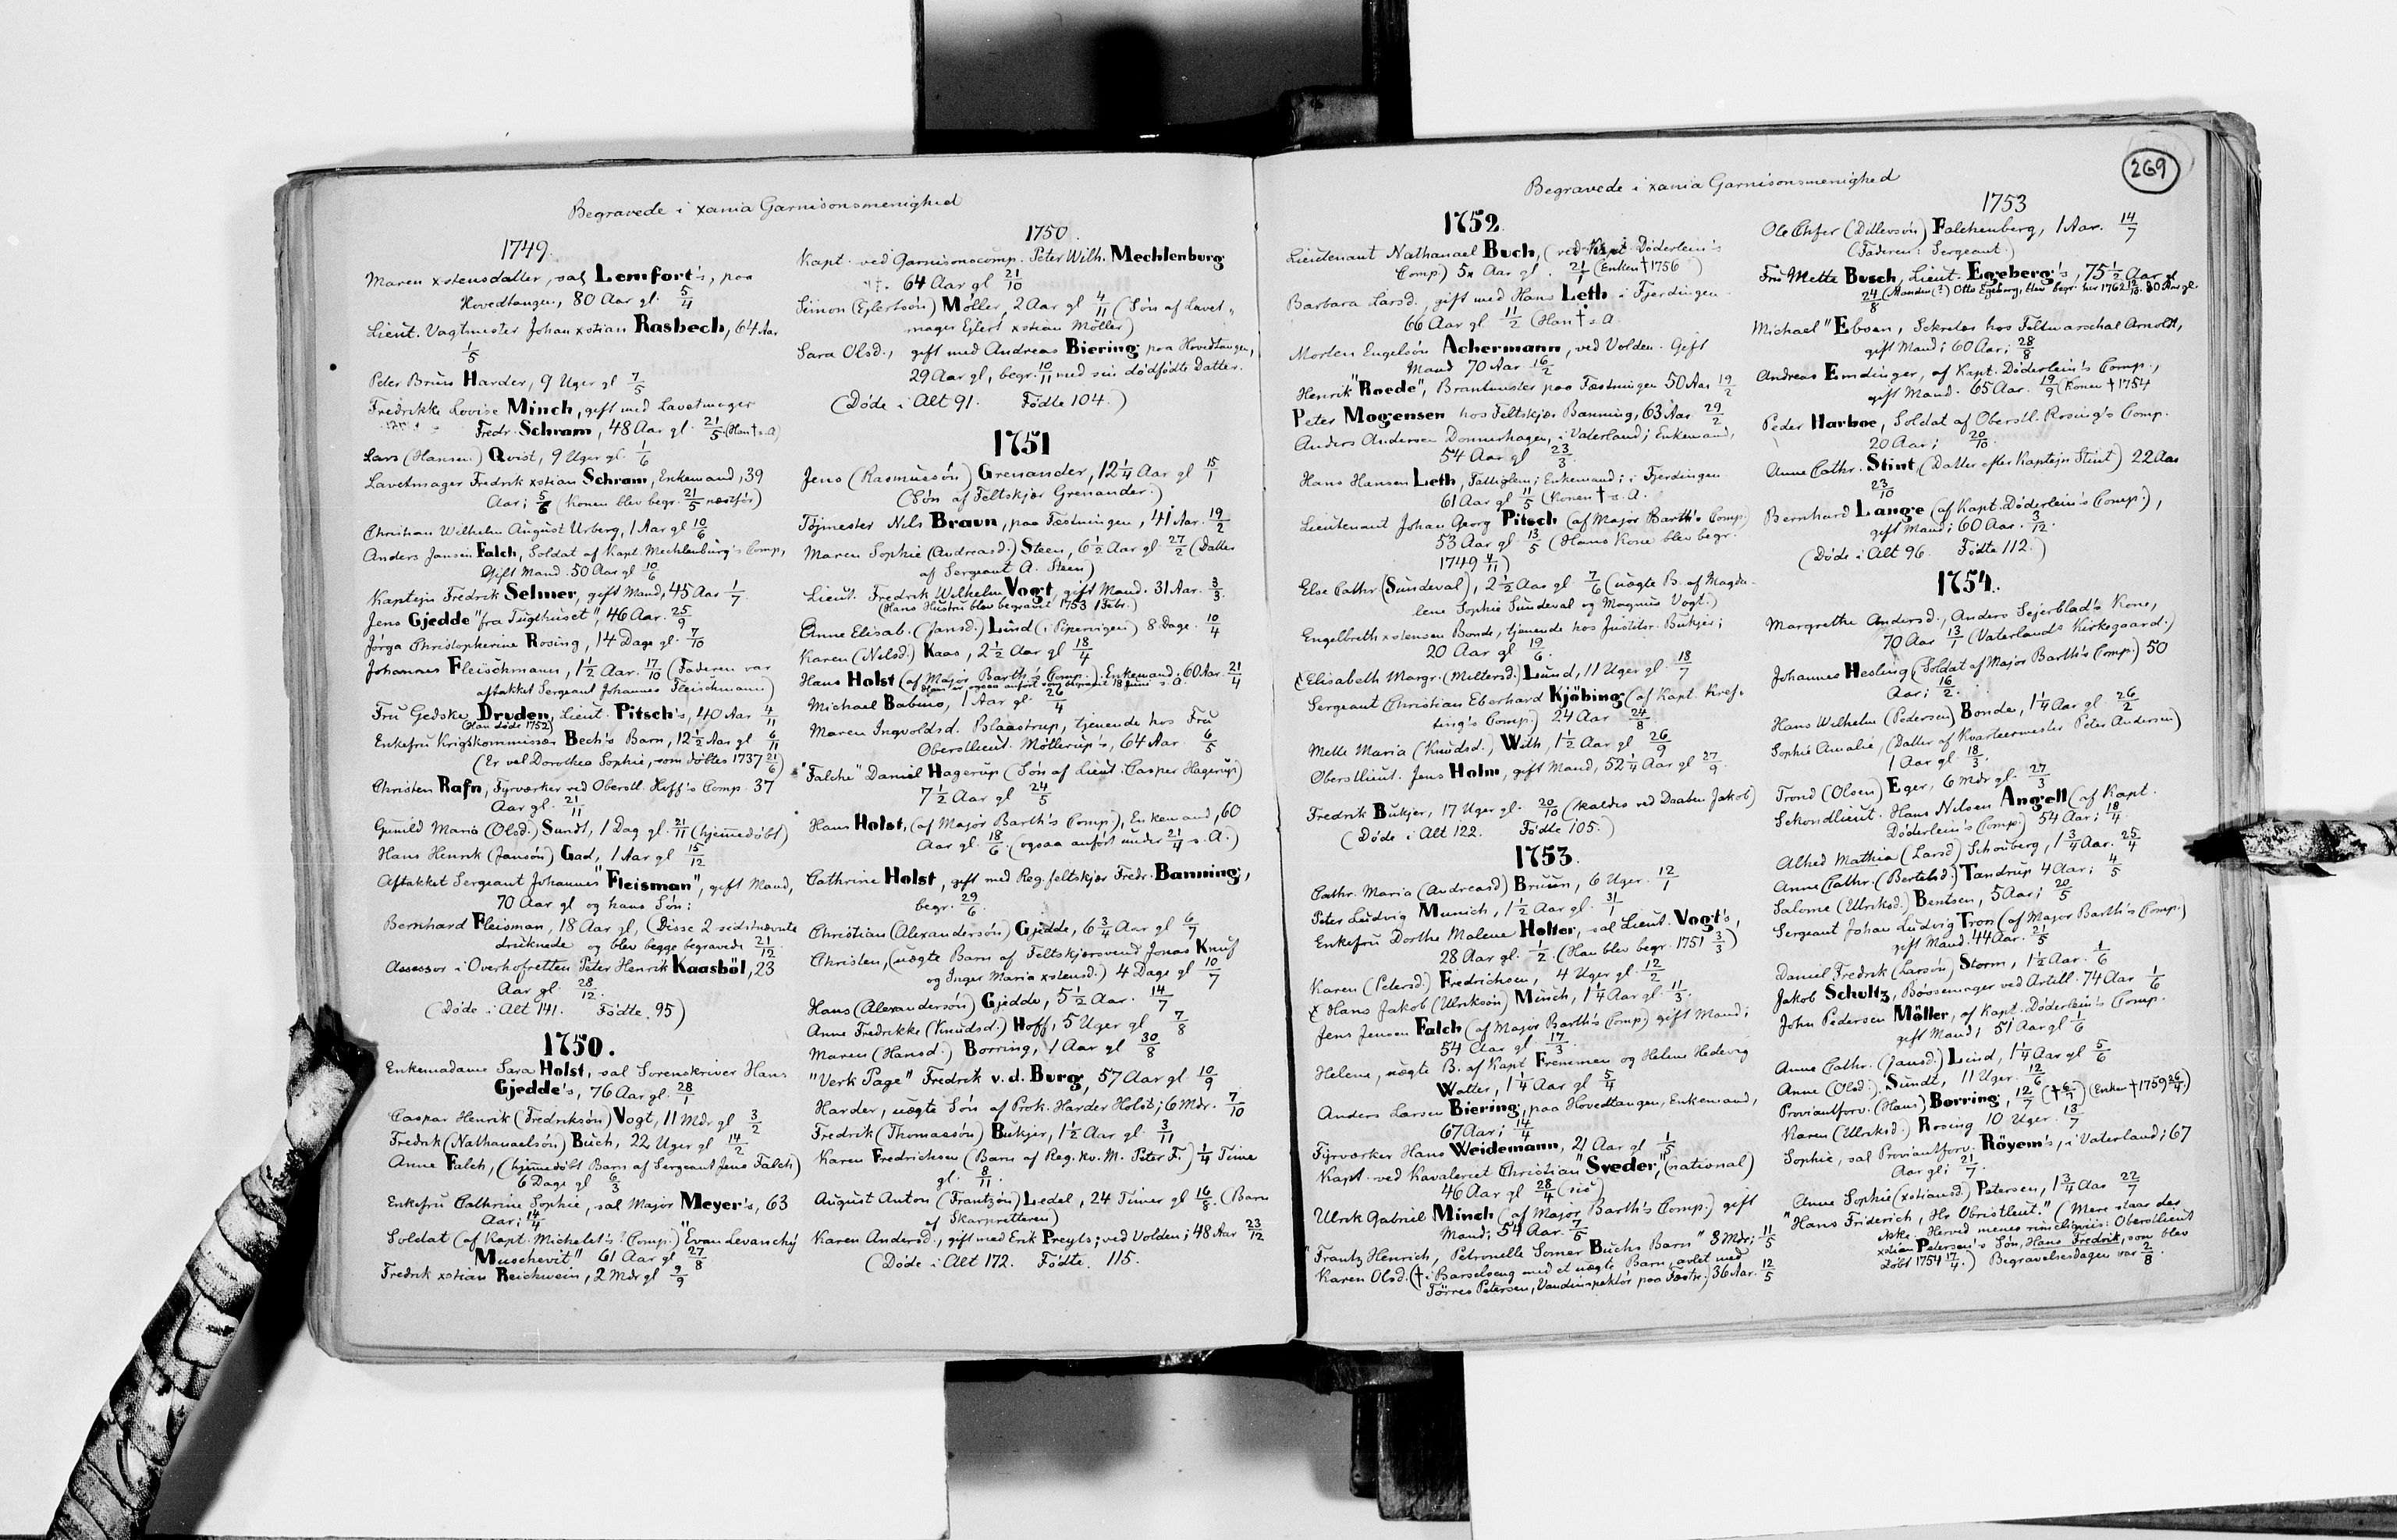 Begravede i xania Garnisonsmenighed
1749.
Maren xstensdatter, sal Lemfort's, paa
Hovedtangen, 80 Aar gl. 5/4
Lieut. Vagtmester Johan xstian Rasbech, 64 Aar
1/5
Peter Bruun Harder, 9 Uger gl 7/5
Fredrikke Lovise Minch, gift med Lavetmager
Fredr. Schram, 48 Aar gl. 21/5 (Han † s.A)
Lars (Hansen) Qvist, 9 Uger gl. 1/6
Lavetmager Fredrik xstian Schram, Enkemand, 39
Aar; 5/6 (Konen blev begr. 21/5 næstfør)
Christian Wilhelm August Urberg, 1 Aar gl 10/6
Anders Jansen Falch, Soldat af Kapt. Mechlenburg's Comp,
Gift Mand. 50 Aar gl 10/6
Kaptejn Fredrik Selmer, gift Mand, 45 Aar 1/7
Jens Gjedde "fra Tugthuset", 46 Aar. 25/9
Jørga Christopherine Rosing, 14 Dage gl. 7/10
Johannes Fleischmann, 1 1/2 Aar. 17/10 (Faderen var
aftakket Sergeant Johannes Fleischmann)
Fru Gedske Dryden, Lieut. Pitsch's, 40 Aar 4/11
(Han døde 1752)
Enkefru Krigskommissær Bech's Barn, 12 1/2 Aar gl 6/11
(Er vel Dorothea Sophie, som døbtes 1737 21/6)
Christen Rafn, Fyrværker ved Oberstl. Hoff's Comp. 37
Aar gl. 21/11
Gunild Maria (Olsd.) Sundt, 1 Dag gl. 21/11 (hjemmedøbt)
Hans Henrik (Jansøn) Gad, 1 Aar gl 15/12
Aftakket Sergeant Johannes "Fleisman", gift Mand,
70 Aar gl og hans Søn:
Bernhard Fleisman, 18 Aar gl, (Disse 2 sidstnævnte
druknede og blev begge begravede 21/12
Assessor i Overhofretten Peter Henrik Kaasböl, 23
Aar gl. 28/12.
(Døde i Alt 141. Fødte. 95)
1750.
Enkemadame Sara Holst, sal Sorenskriver Hans
Gjedde's, 76 Aar gl. 28/1
Caspar Henrik (Fredriksøn) Vogt, 11 Mdr gl 3/2
Fredrik (Nathanaelsøn) Buch, 22 Uger gl 14/2
Anne Falch, (hjemmedøbt Barn af Sergeant Jens Falch)
6 Dage gl 6/3
Enkefru Cathrine Sophie, sal Major Meyer's, 63
Aar; 14/4
Soldat (af Kapt. Michelet's? Comp.) "Evan Levanchy
Muschevit" 61 Aar gl 27/8
Fredrik xstian Reichwein, 2 Mdr gl 9/9
1750.
Kapt. ved Garnisonscomp. Peter Wilh. Mechlenburg
64 Aar gl 21/10
Simon (Ejlertsøn) Møller, 2 Aar gl 4/11 (Søn af Lavet-
mager Ejlert xstian Møller)
Sara Olsd., gift med Andreas Biering paa Hovedtangen,
29 Aar gl, begr. 10/11 med sin dødfødte Datter.
(Døde i Alt 91. Fødte 104.)
1751
Jens (Rasmussøn) Grenander, 12 1/4 Aar gl 15/1
(Søn af Feltskjær Grenander.)
Tøjmester Nils Bravn, paa Fæstningen, 41 Aar. 19/2
Maren Sophie (Andreasd.) Steen, 6 1/2 Aar gl 27/2 (Datter
af Sergeant A. Steen)
Lieut. Fredrik Wilhelm Vogt, gift Mand. 31 Aar. 3/3
(Hans Hustru blev begravet 1753 1 Febr.)
Anne Elisab. (Jansd.) Lund (i Pipervigen) 8 Dage. 10/4
Karen (Nilsd.) Kaas, 2 1/2 Aar gl 18/4
Hans Holst (af Major Barth's Comp.). Enkemand, 60 Aar. 21/4
(Han er ogsaa anført som begravet 18 Juni s.A.)
Michael Babino, 1 Aar gl. 26/4
Maren Ingvoldsd. Blaastrup, tjenende hos Fru
Oberstlieut. Møllerup's, 64 Aar 6/5
"Falche" Daniel Hagerup (Søn af Lieut. Casper Hagerup)
7 1/2 Aar gl 24/5
Hans Holst, (af Major Barth's Comp), Enkemand, 60
Aar gl. 18/6. (ogsaa anført under 21/4 s.A.)
Cathrine Holst, gift med Reg. feltskjær Fredr. Banning,
begr. 29/6.
Christian (Alexandersøn) Gjedde, 6 3/4 Aar gl 6/7
Christen, (uægte Barn af Feltskjærsvend Jonas Knuf
og Inger Maria xstensd.) 4 Dage gl 10/7
Hans (Alexandersøn) Gjedde, 5 1/2 Aar. 14/7
Anne Fredrikke (Knudsd.) Hoff, 5 Uger gl 7/8
Maren (Hansd.) Borring, 1 Aar gl 30/8
"Verk Page" Fredrik v. d. Burg, 57 Aar gl 10/9
Harder, uægte Søn af Prok. Harder Holst; 6 Mdr. 7/10
Fredrik (Thomassøn) Bukjer, 1 1/2 Aar gl. 3/11
Karen Fredrichsen (Barn af Reg. kv. M. Peter F.) 1/4 Time
gl. 8/11.
August Anton (Frantzøn) Ledel, 24 Timer gl 16/8. (Barn
af Skarpretteren)
Karen Andersd., gift med Erik Preyts; ved Volden; 48 Aar 23/12
(Døde i Alt 172. Fødte. 115.
269
Begravede i xania Garnisonsmenighed
1752.
Lieutenant Nathanael Buch, (ved Kapt. Døderlein's
Comp.) 5x Aar gl. 21/1 (Enken † 1756)
Barbara Larsd. gift med Hans Leth i Fjerdingen
66 Aar gl 11/2 (Han † s.A.
Morten Engelsøn Achermann, ved Volden. Gift
Mand 70 Aar 16/2
Henrik "Roede", Brantmester paa Fæstningen 50 Aar 19/2
Peter Mogensen hos Feltskjær Banning, 63 Aar. 29/2
Anders Andersen Donnerhagen, i Vaterland; Enkemand,
54 Aar gl 23/3.
Hans Hansen Leth, Fattiglem; Enkemand; i Fjerdingen
61 Aar gl 11/5 (Konen † s.A.
Lieutenant Johan Georg Pitsch (af Major Barth's Comp)
53 Aar gl. 13/5 (Hans Kone blev begr.
1749 4/11)
Else Cathr (Sundeval), 2 1/2 Aar gl 7/6 (uægte B. af Magda-
lene Sophie Sundeval og Magnus Vogt.)
Engelbreth xstensen Bonde, tjenende hos Justitsr. Bukjer;
20 Aar gl 19/6.
Elisabeth Margr. (Meltersd.) Lund, 11 Uger gl. 18/7
Sergeant Christian Eberhard Kjøbing (af Kapt. Kref-
ting's Comp) 24 Aar 24/8
Mette Maria (Knudsd.) With, 1 1/2 Aar gl 26/9
Oberstlieut. Jens Holm, gift Mand, 52 1/4 Aar gl 27/9.
Fredrik Bukjer, 17 Uger gl. 20/10 (kaldes ved Daaben Jakob)
(Døde i Alt 122. Fødte 105.)
1753.
Cathr. Maria (Andreasd) Bruun, 6 Uger. 12/1
Peter Ludvig Munich, 1 1/2 Aar gl. 31/1
Enkefru Dorthe Malene Holter, sal Lieut. Vogt's,
28 Aar gl. 1/2 (Han blev begr. 1751 3/3)
Karen (Petersd.) Fredrichsen, 4 Uger gl. 12/2
x Hans Jakob (Ulriksøn) Münich, 1 1/4 Aar gl. 11/3.
Jens Jensen Falch (af Major Barth's Comp) gift Mand;
54 Aar gl 17/3.
Helene, uægte B. af Kapt Fremmen og Helene Hedevig
Walter, 1 1/4 Aar gl 5/4
Anders Larsen Biering, paa Hovedtangen, Enkemand,
67 Aar; 14/4
Fyrværker Hans Weidemann, 21 Aar gl 1/5
Kapt. ved Kavaleriet Christian "Sveder", (national)
46 Aar gl 28/4 (sic)
Ulrik Gabriel Minch (af Major Barth's Comp.) gift
Mand; 54 Aar. 7/5
"Frantz Henrich, Petronelle Somer Buchs Barn" 8 Mdr; 11/5
Karen Olsd. († i Barselseng med et uægte Barn, avlet med
Tørres Petersen, Vandinspektør paa Fæstn.) 36 Aar. 12/5
1753
Ole Chfer (Ditlevsøn) Falchenberg, 1 Aar. 14/7
(Faderen: Sergeant.)
Fru Mette Busch, Lieut. Egeberg's, 75 1/2 Aar gl
24/8 (Manden(?) Otto Egeberg, blev begr. her 1762 12/10. 80 Aar gl.
Michael "Ebsen, Sekretær hos Feltmarschal Arnoldt,
gift Mand; 60 Aar; 28/8
Andreas Emdinger, af Kapt. Døderlein's Comp.,
gift Mand. 65 Aar. 19/9 (Konen † 1754
Peder Harboe, Soldat af Oberstl. Rosing's Comp.
20 Aar; 20/10.
Anne Cathr. Stint, (Datter efter Kaptejn Stint) 22 Aar
23/10
Bernhard Lange (af Kapt. Døderlein's Comp.),
gift Mand; 60 Aar. 3/12.
(Døde i Alt 96. Fødte 112.)
1754.
Margrethe Andersd., Anders Sejerblad's Kone,
70 Aar 13/1 (Vaterlands Kirkegaard.)
Johannes Hesling (Soldat af Major Barth's Comp.) 50
Aar; 16/2.
Hans Wilhelm (Pedersen) Bonde, 1 1/4 Aar gl 26/2
Sophie Amalie, (Datter af Kvarteermester Peter Andersen)
1 Aar gl. 18/3.
Trond (Olsen) Eger, 6 Mdr gl. 27/3
Sekondlieut. Hans Nilsen Angell (af Kapt.
Døderlein's Comp.) 54 Aar; 18/4
Alhed Mathia (Larsd) Schouberg, 1 3/4 Aar. 25/4
Anne Cathr. (Bertelsd.) Tandrup 4 Aar; 4/5
Salome (Ulriksd.) Bentsen, 5 Aar; 20/5
Sergeant Johan Ludvig Tron (af Major Barth's Comp.)
gift Mand. 44 Aar. 21/5
Daniel Fredrik (Larsøn) Storm, 1 1/2 Aar. 1/6
Jakob Schultz, Bøssemager ved Artill. 74 Aar 1/6
John Pedersen Møller, af Kapt. Døderlein's Comp.
gift Mand; 51 Aar gl 1/6
Anne Cathr. (Jansd.) Lund, 1 1/4 Aar gl 5/6
Anne (Olsd.) Sundt, 11 Uger. 12/6
Proviantforv. (Hans) Borring, 12/7 († 6/7) (Enken † 1759 26/4.)
Karen (Ulriksd.) Rosing 10 Uger. 13/7
Sophie, sal Proviantforv. Röyem's, i Vaterland; 67
Aar gl; 21/7.
Anne Sophie (xstiansd.) Petersen, 1 3/4 Aar 22/7
"Hans Friderich, Hr Obristleut." (Mere staar der
ikke. Herved menes rimeligviis: Oberstlieut
xstian Petersen's Søn, Hans Fredrik, som blev
døbt 1754 17/4.) Begravelsesdagen var 2/8.